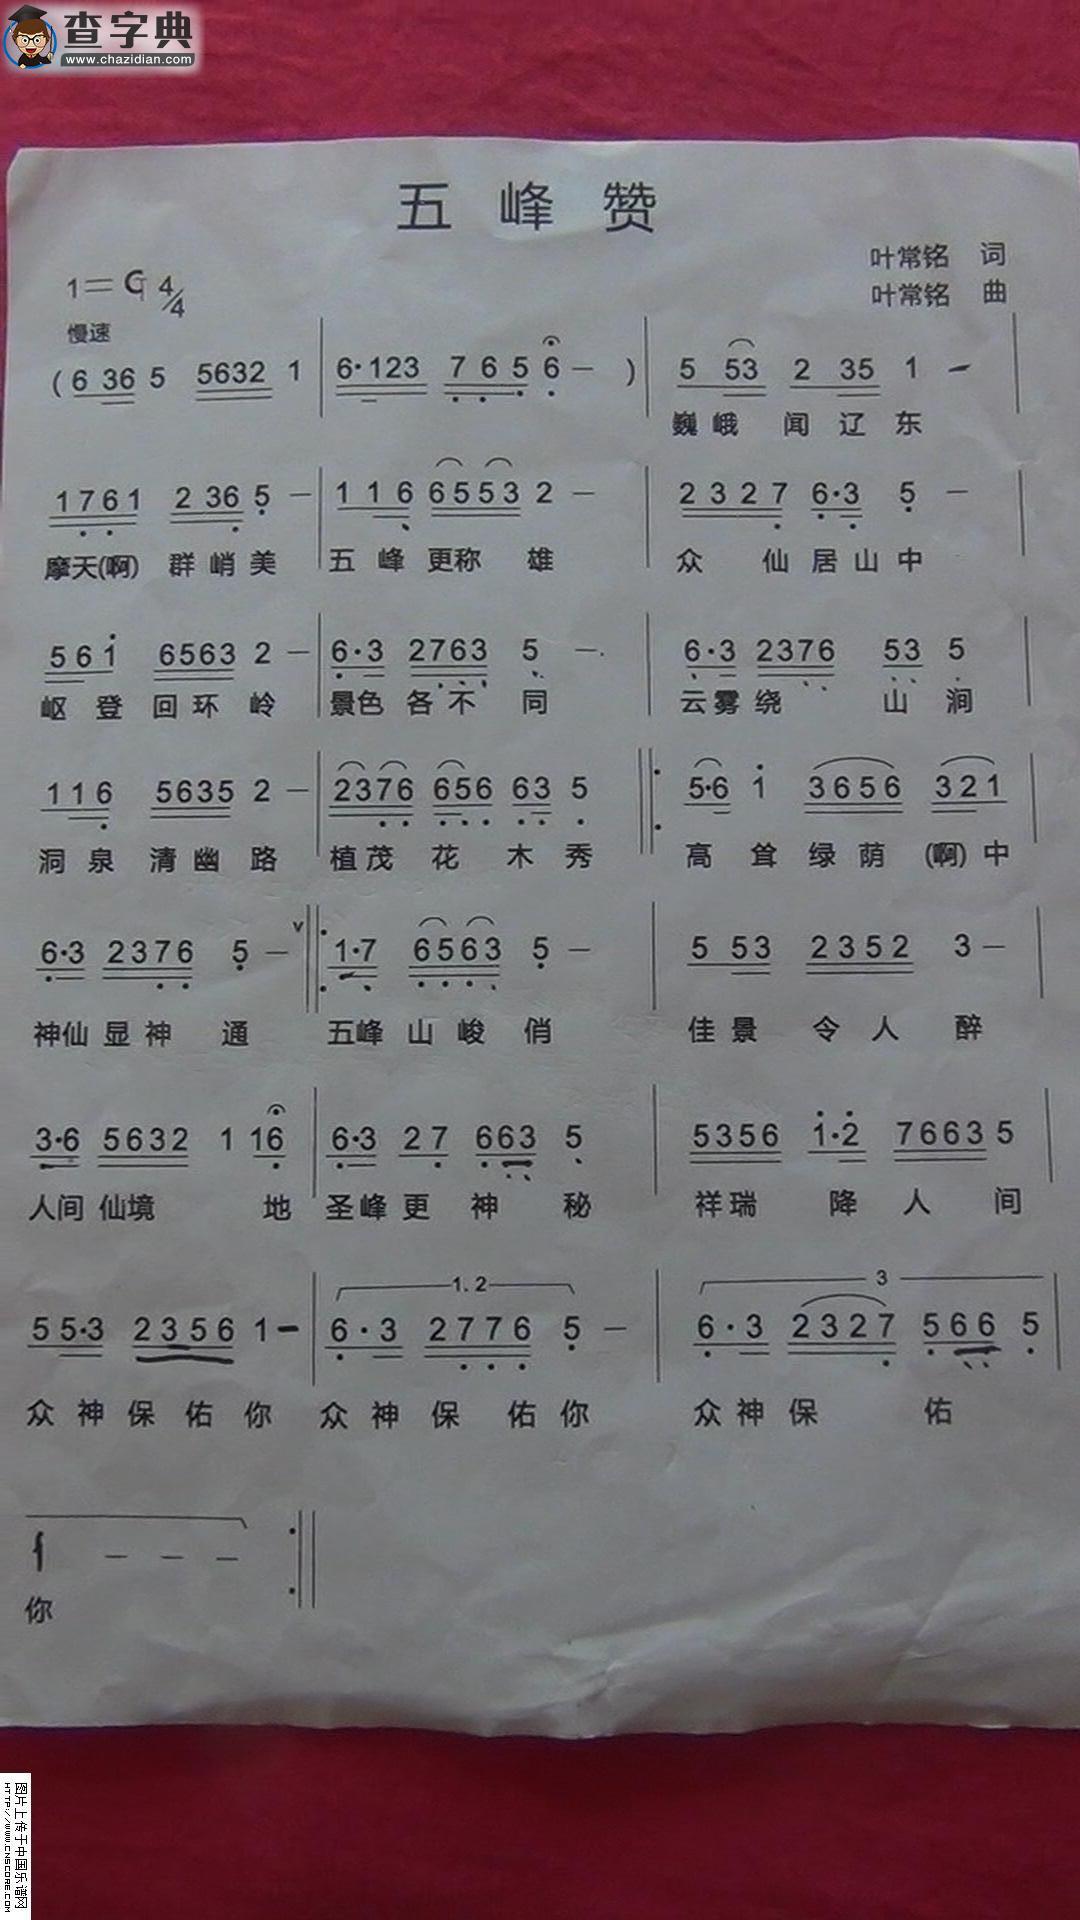 查字典
www.chazidian.com
五峰赞
叶常铭 词
1=G 4/4
叶常铭 曲
慢速
(6 36 5 5632 1 | 6·123 765 6 — ) | 5 53 2 35 1 —
巍峨闻辽东
1761 2 36 5 — | 1 1 6 6553 2 — | 2327 6·3 5 —
摩天(啊) 群峭美 五峰更称雄 众仙居山中
561 6563 2 — | 6·3 2763 5 — · | 6·3 2376 53 5
岖登回环岭 景色各不同 云雾绕山涧
116 5635 2 — | 2376 656 63 5 ‖: 5·6 1 3656 321
洞泉清幽路 植茂花木秀 高耸绿荫(啊)中
6·3 2376 5 — v ‖: 1·7 6563 5 — | 5 53 2352 3 —
神仙显神通 五峰山峻俏 佳景令人醉
3·6 5632 1 16 | 6·3 27 663 5 | 5356 1·2 7663 5
人间仙境地 圣峰更神秘 祥瑞降人间
1.2 3
5 5·3 2356 1 — | 6·3 2776 5 — | 6·3 2327 566 5
众神保佑你 众神保佑你 众神保佑
1 — — — :‖
你
图片上传于中国乐谱网
HTTP://WWW.CNSCORE.COM